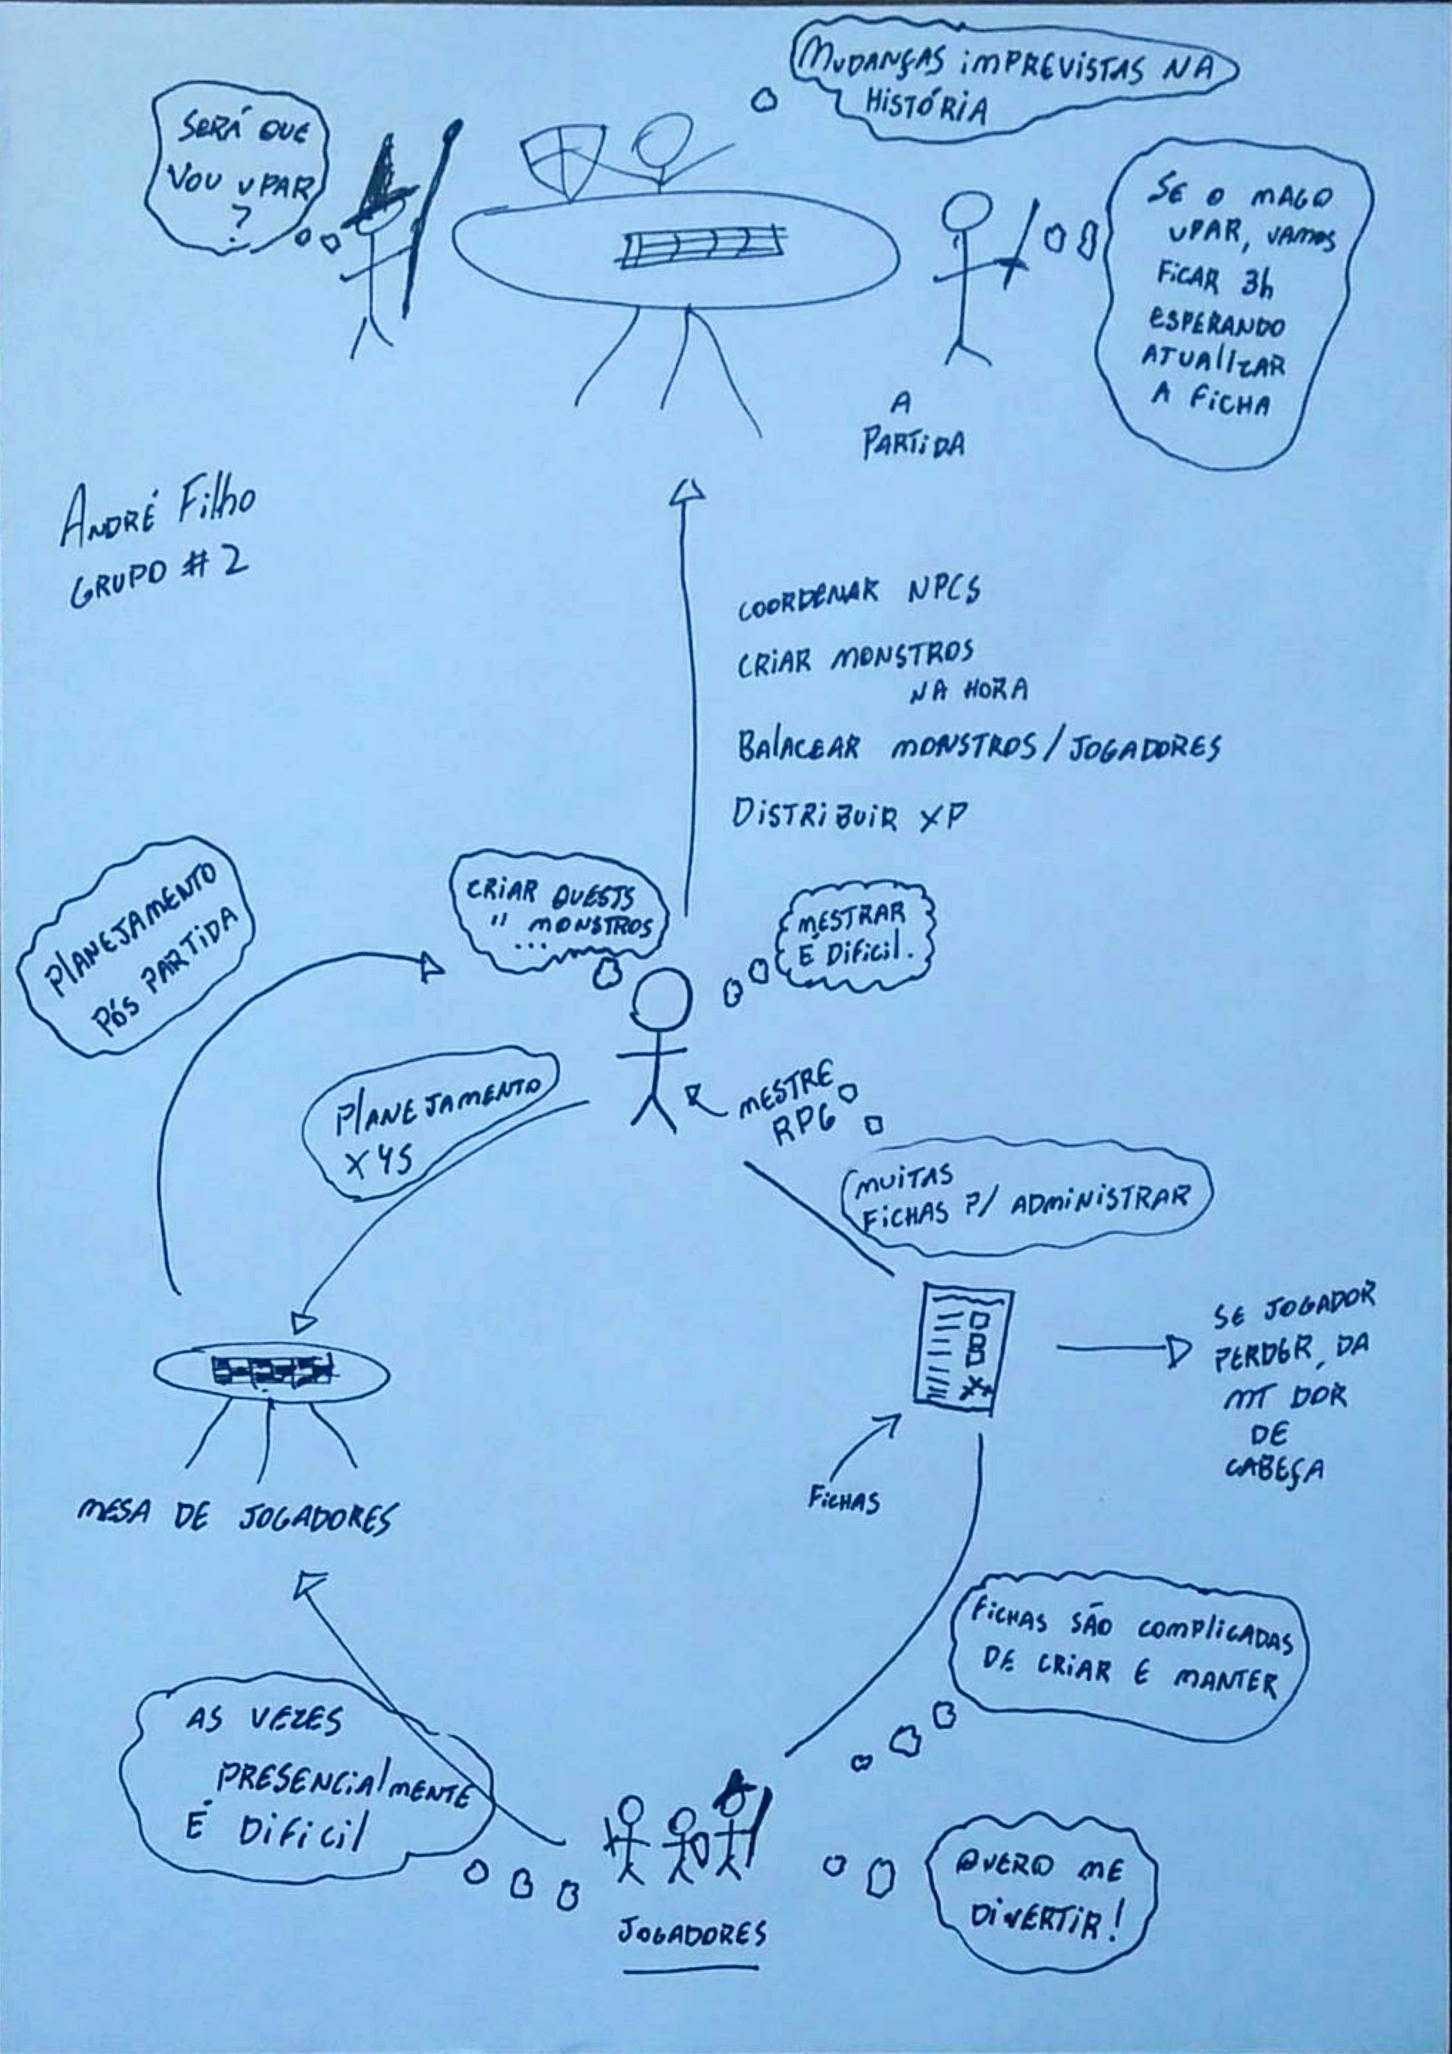 MUDANÇAS IMPREVISTAS NA
HISTÓRIA
SERÁ QUE
VOU UPAR
?
SE O MAGO
UPAR, VAMOS
FICAR 3h
ESPERANDO
ATUALIZAR
A FICHA
A
PARTIDA
ANDRÉ Filho
GRUPO # 2
COORDENAR NPCS
CRIAR MONSTROS
NA HORA
BALACEAR MONSTROS / JOGADORES
DISTRIBUIR XP
PLANEJAMENTO
PÓS PARTIDA
CRIAR QUESTS
" MONSTROS
...
MESTRAR
É DIFICIL.
PLANEJAMENTO
MESTRE
RPG
MUITAS
FICHAS P/ ADMINISTRAR
SE JOGADOR
PERDER, DA
MT DOR
DE
CABEÇA
FICHAS
MESA DE JOGADORES
FICHAS SÃO COMPLICADAS
DE CRIAR E MANTER
AS VEZES
PRESENCIALMENTE
É DIFICIL
QUERO ME
DIVERTIR!
JOGADORES